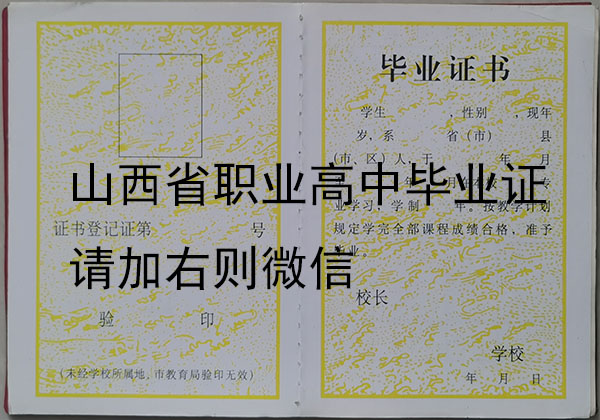 证书登记证第 号
验 印
(未经学校所属地，市教育局验印无效)
毕业证书
学生 ，性别 ，现年
岁，系 省(市) 县
(市、区)人，于 年 月
月在本校 专
业学习，学制 年。按教学计划
规定学完全部课程成绩合格，准予
毕业。
校长
学校
年 月 日
山西省职业高中毕业证
请加右则微信